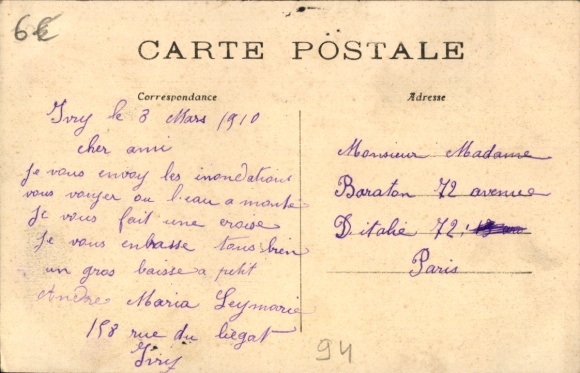 6€
CARTE POSTALE
Correspondance
Ivry le 8 Mars 1910
cher ami
je vous envoy les inondations
vous voyer ou l'eau a monté
Je vous fait une croise
Je vous enbasse tous bien
un gros baisse a petit
Andre Maria Leymarie
158 rue du liegat
Ivry
Adresse
Monsieur Madame
Baraton 72 avenue
D'italie 72
Paris
94